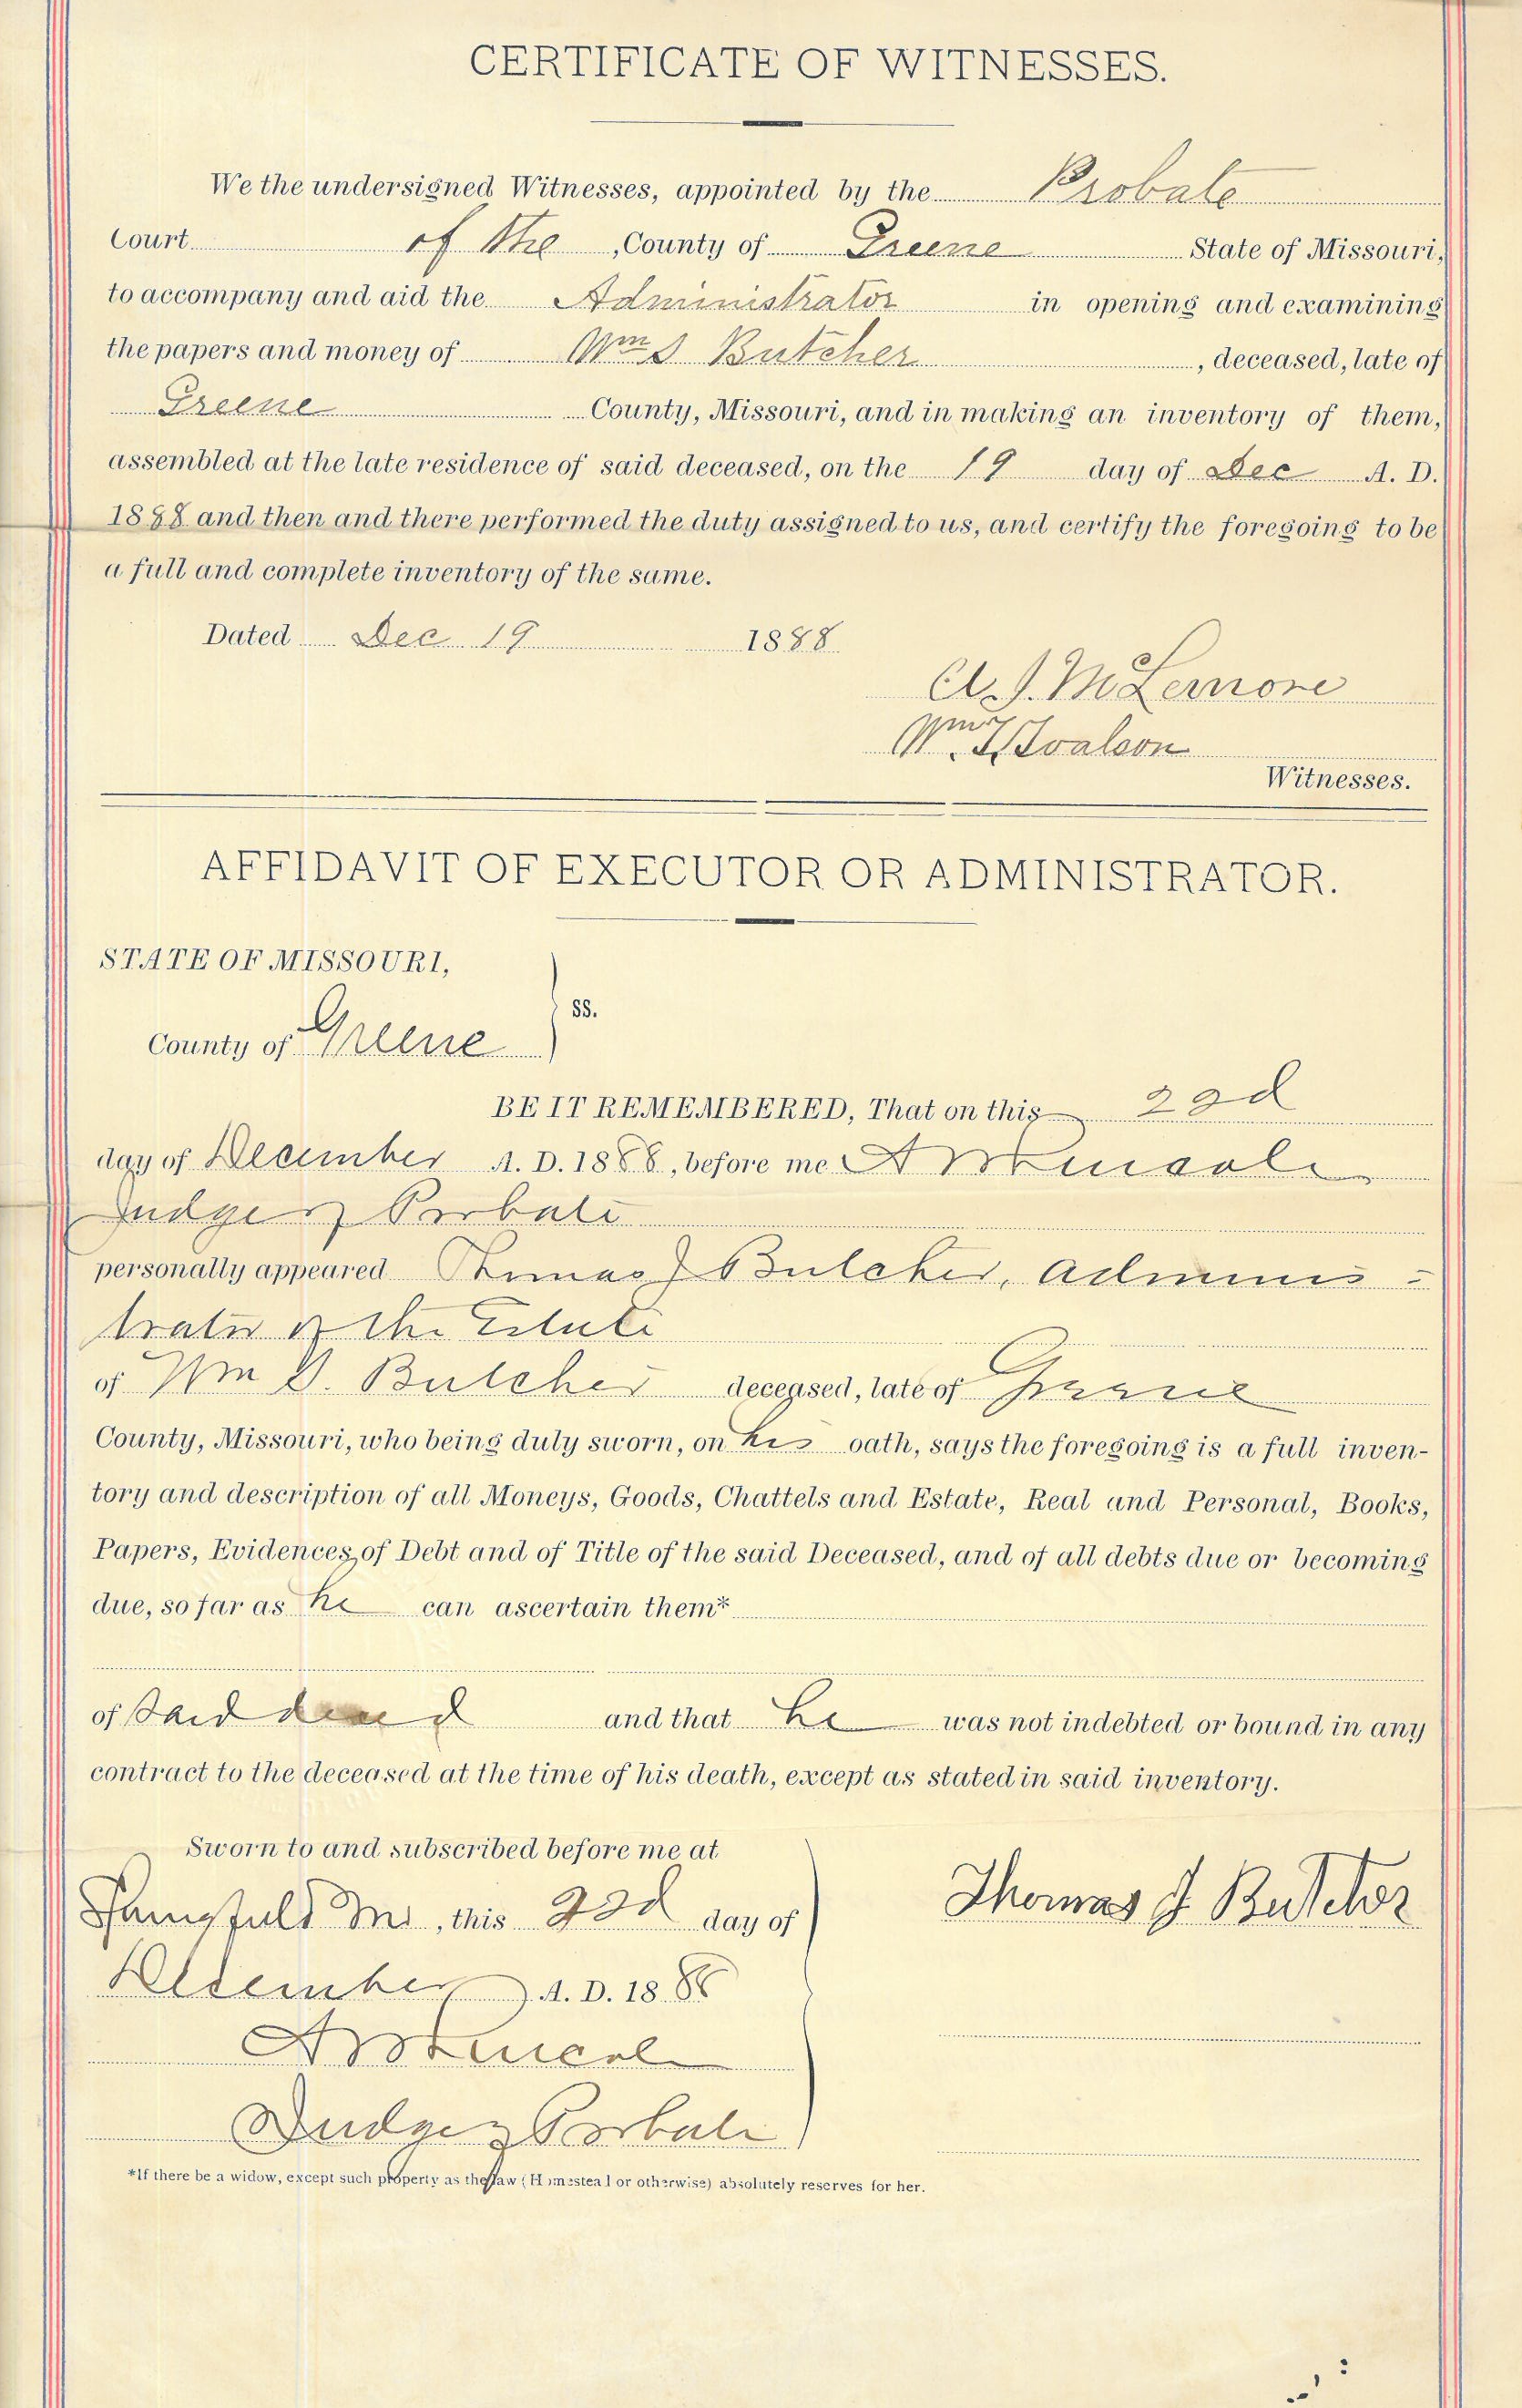 CERTIFICATE OF WITNESSES.
We the undersigned Witnesses, appointed by the Probate
Court of the , County of Greene State of Missouri,
to accompany and aid the Administrator in opening and examining
the papers and money of Wm S Butcher , deceased, late of
Greene County, Missouri, and in making an inventory of them,
assembled at the late residence of said deceased, on the 19 day of Dec A. D.
1888 and then and there performed the duty assigned to us, and certify the foregoing to be
a full and complete inventory of the same.
Dated Dec 19 1888
A. J. McLemore
Wm. T.
Witnesses.
AFFIDAVIT OF EXECUTOR OR ADMINISTRATOR.
STATE OF MISSOURI,
ss.
County of Greene
BE IT REMEMBERED, That on this 22d
day of December A. D. 1888, before me A W Lincoln
Judge of Probate
personally appeared Thomas J Butcher, Adminis-
trator of the Estate
of Wm S. Butcher deceased, late of Greene
County, Missouri, who being duly sworn, on his oath, says the foregoing is a full inven-
tory and description of all Moneys, Goods, Chattels and Estate, Real and Personal, Books,
Papers, Evidences of Debt and of Title of the said Deceased, and of all debts due or becoming
due, so far as he can ascertain them*
of said decd and that he was not indebted or bound in any
contract to the deceased at the time of his death, except as stated in said inventory.
Sworn to and subscribed before me at
Springfield Mo , this 22d day of
December A. D. 1888
Thomas J Butcher
A W Lincoln
Judge of Probate
*If there be a widow, except such property as the law (Homestead or otherwise) absolutely reserves for her.